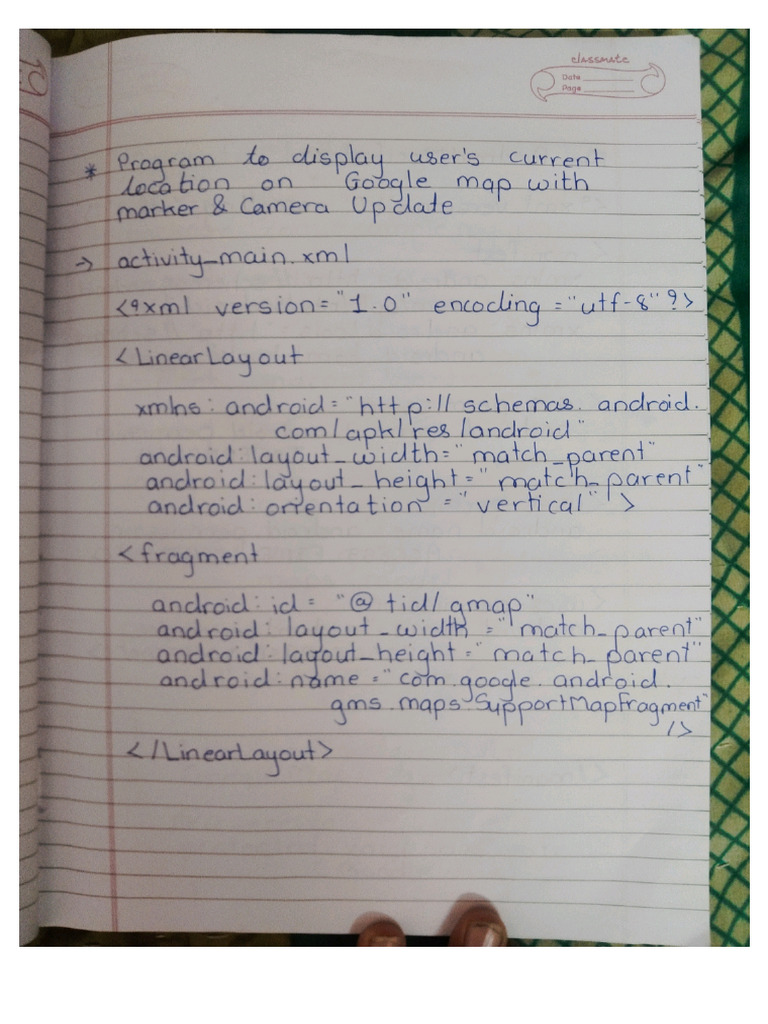 classmate
Date
Page
* Program to display user's current
location on Google map with
marker & Camera Update
→ activity_main.xml
<?xml version="1.0" encoding="utf-8"?>
<LinearLayout
xmlns:android="http://schemas.android.
com/apk/res/android"
android:layout_width="match_parent"
android:layout_height="match_parent"
android:orientation="vertical" >
<fragment
android:id="@tid/gmap"
android:layout_width="match_parent"
android:layout_height="match_parent"
android:name="com.google.android.
gms.maps.SupportMapFragment"
/>
</LinearLayout>